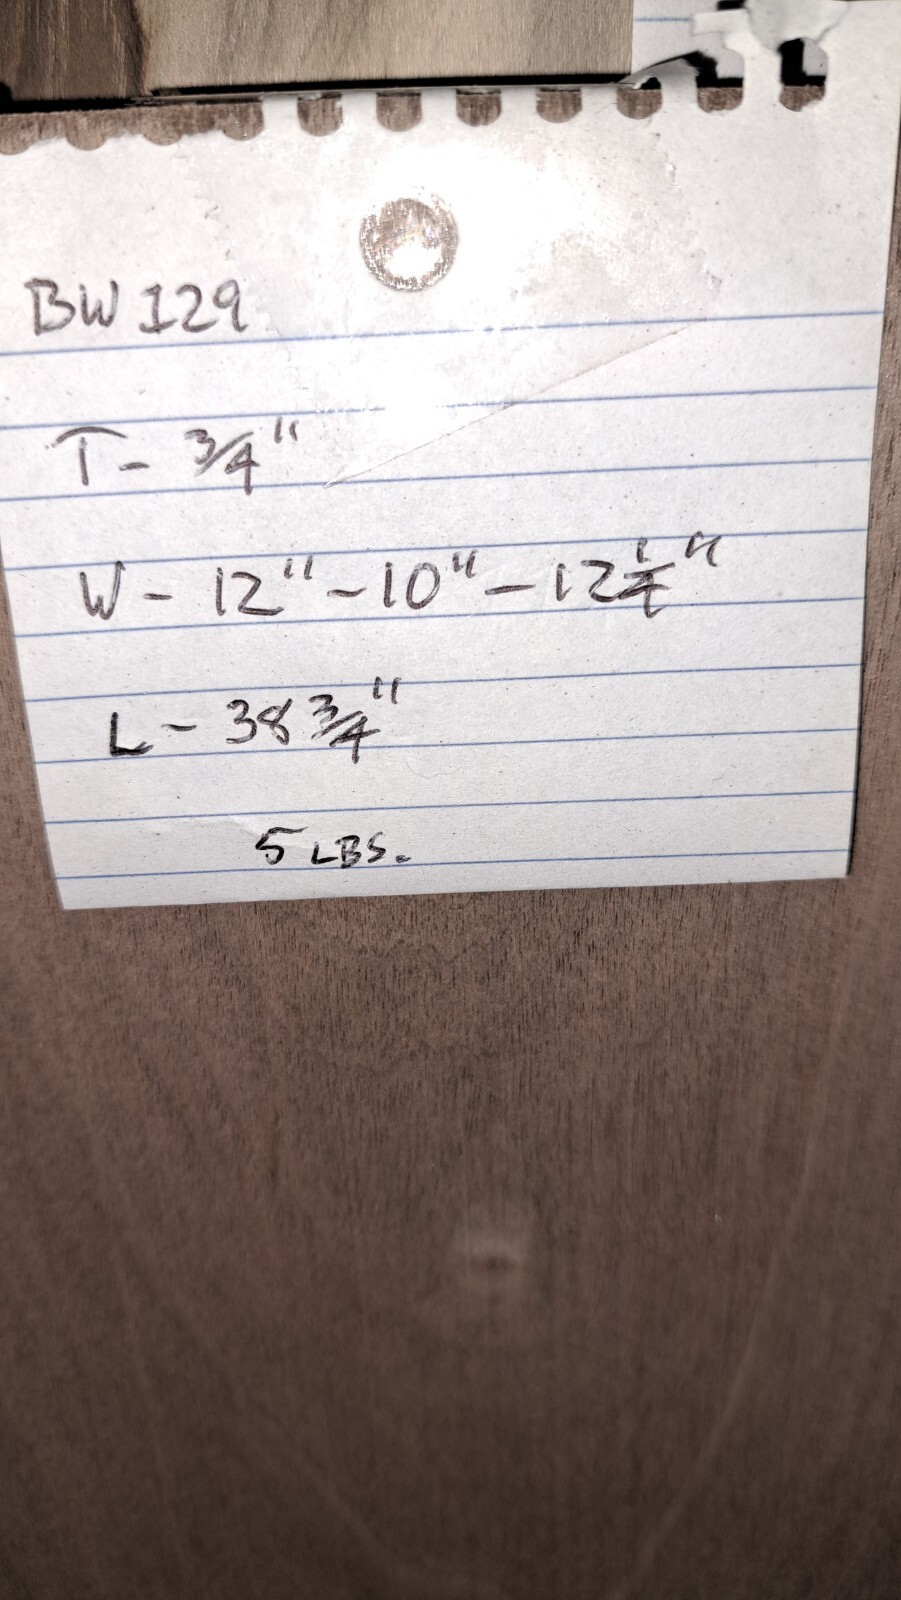 BW 129
T- 3/4"
W - 12" - 10" - 12 1/4"
L - 38 3/4"
5 LBS.